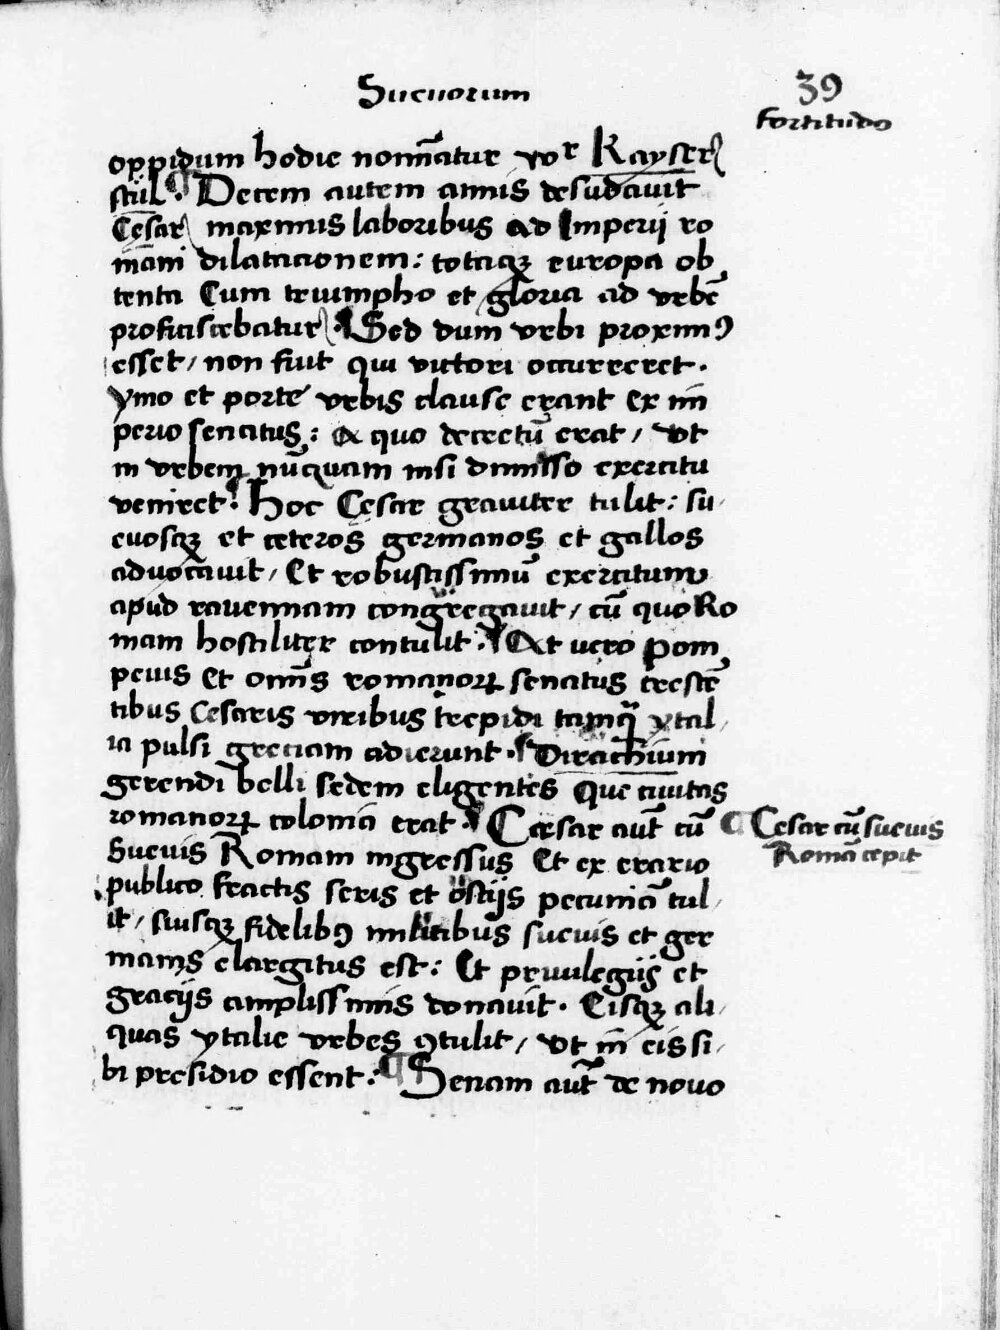 Sueuorum
39
fortitudo
oppidum hodie nomīatur vor Kayser
stůl. Decem autem annis desudauit
Cesar maximis laboribus ad Imperij ro
mani dilatacionem: totaqꝫ europa ob
tenta Cum triumpho et gloria ad vrbē
proficiscebatur. Sed dum vrbi proximꝰ
esset/ non fuit qui victori occurreret.
ymo et porte vrbis clause erant ex im
perio senatus: a quo decretū erat/ vt
in vrbem nūquam nisi dimisso exercitu
veniret. Hoc Cesar grauiter tulit: su
euosqꝫ et ceteros germanos et gallos
aduocauit/ Et robustissimū exercitum
apud rauennam congregauit/ cū quo Ro
mam hostiliter contulit. At vero pom
peius et om̄s romanorꝝ senatus cresce͂
tibus Cesaris viribus trepidi tamq̄ ytal
ia pulsi greciam adierunt. Dirachium
gerendi belli sedem eligentes Que ciuitas
romanorꝝ colonia erat. Cesar aut̄ cū
Sueuis Romam ingressus Et ex erario
publico fractis seris et ostijs pecuniā tul
it/ suisqꝫ fidelibꝰ militibus sueuis et ger
manis elargitus est: Et priuilegijs et
gracijs amplissimis donauit. Eisqꝫ ali
quas ytalie vrbes ꝯtulit/ vt in̄ eis si
bi presidio essent. Senam aut̄ de nouo
¶ Cesar cū sueuis
Romā cepit